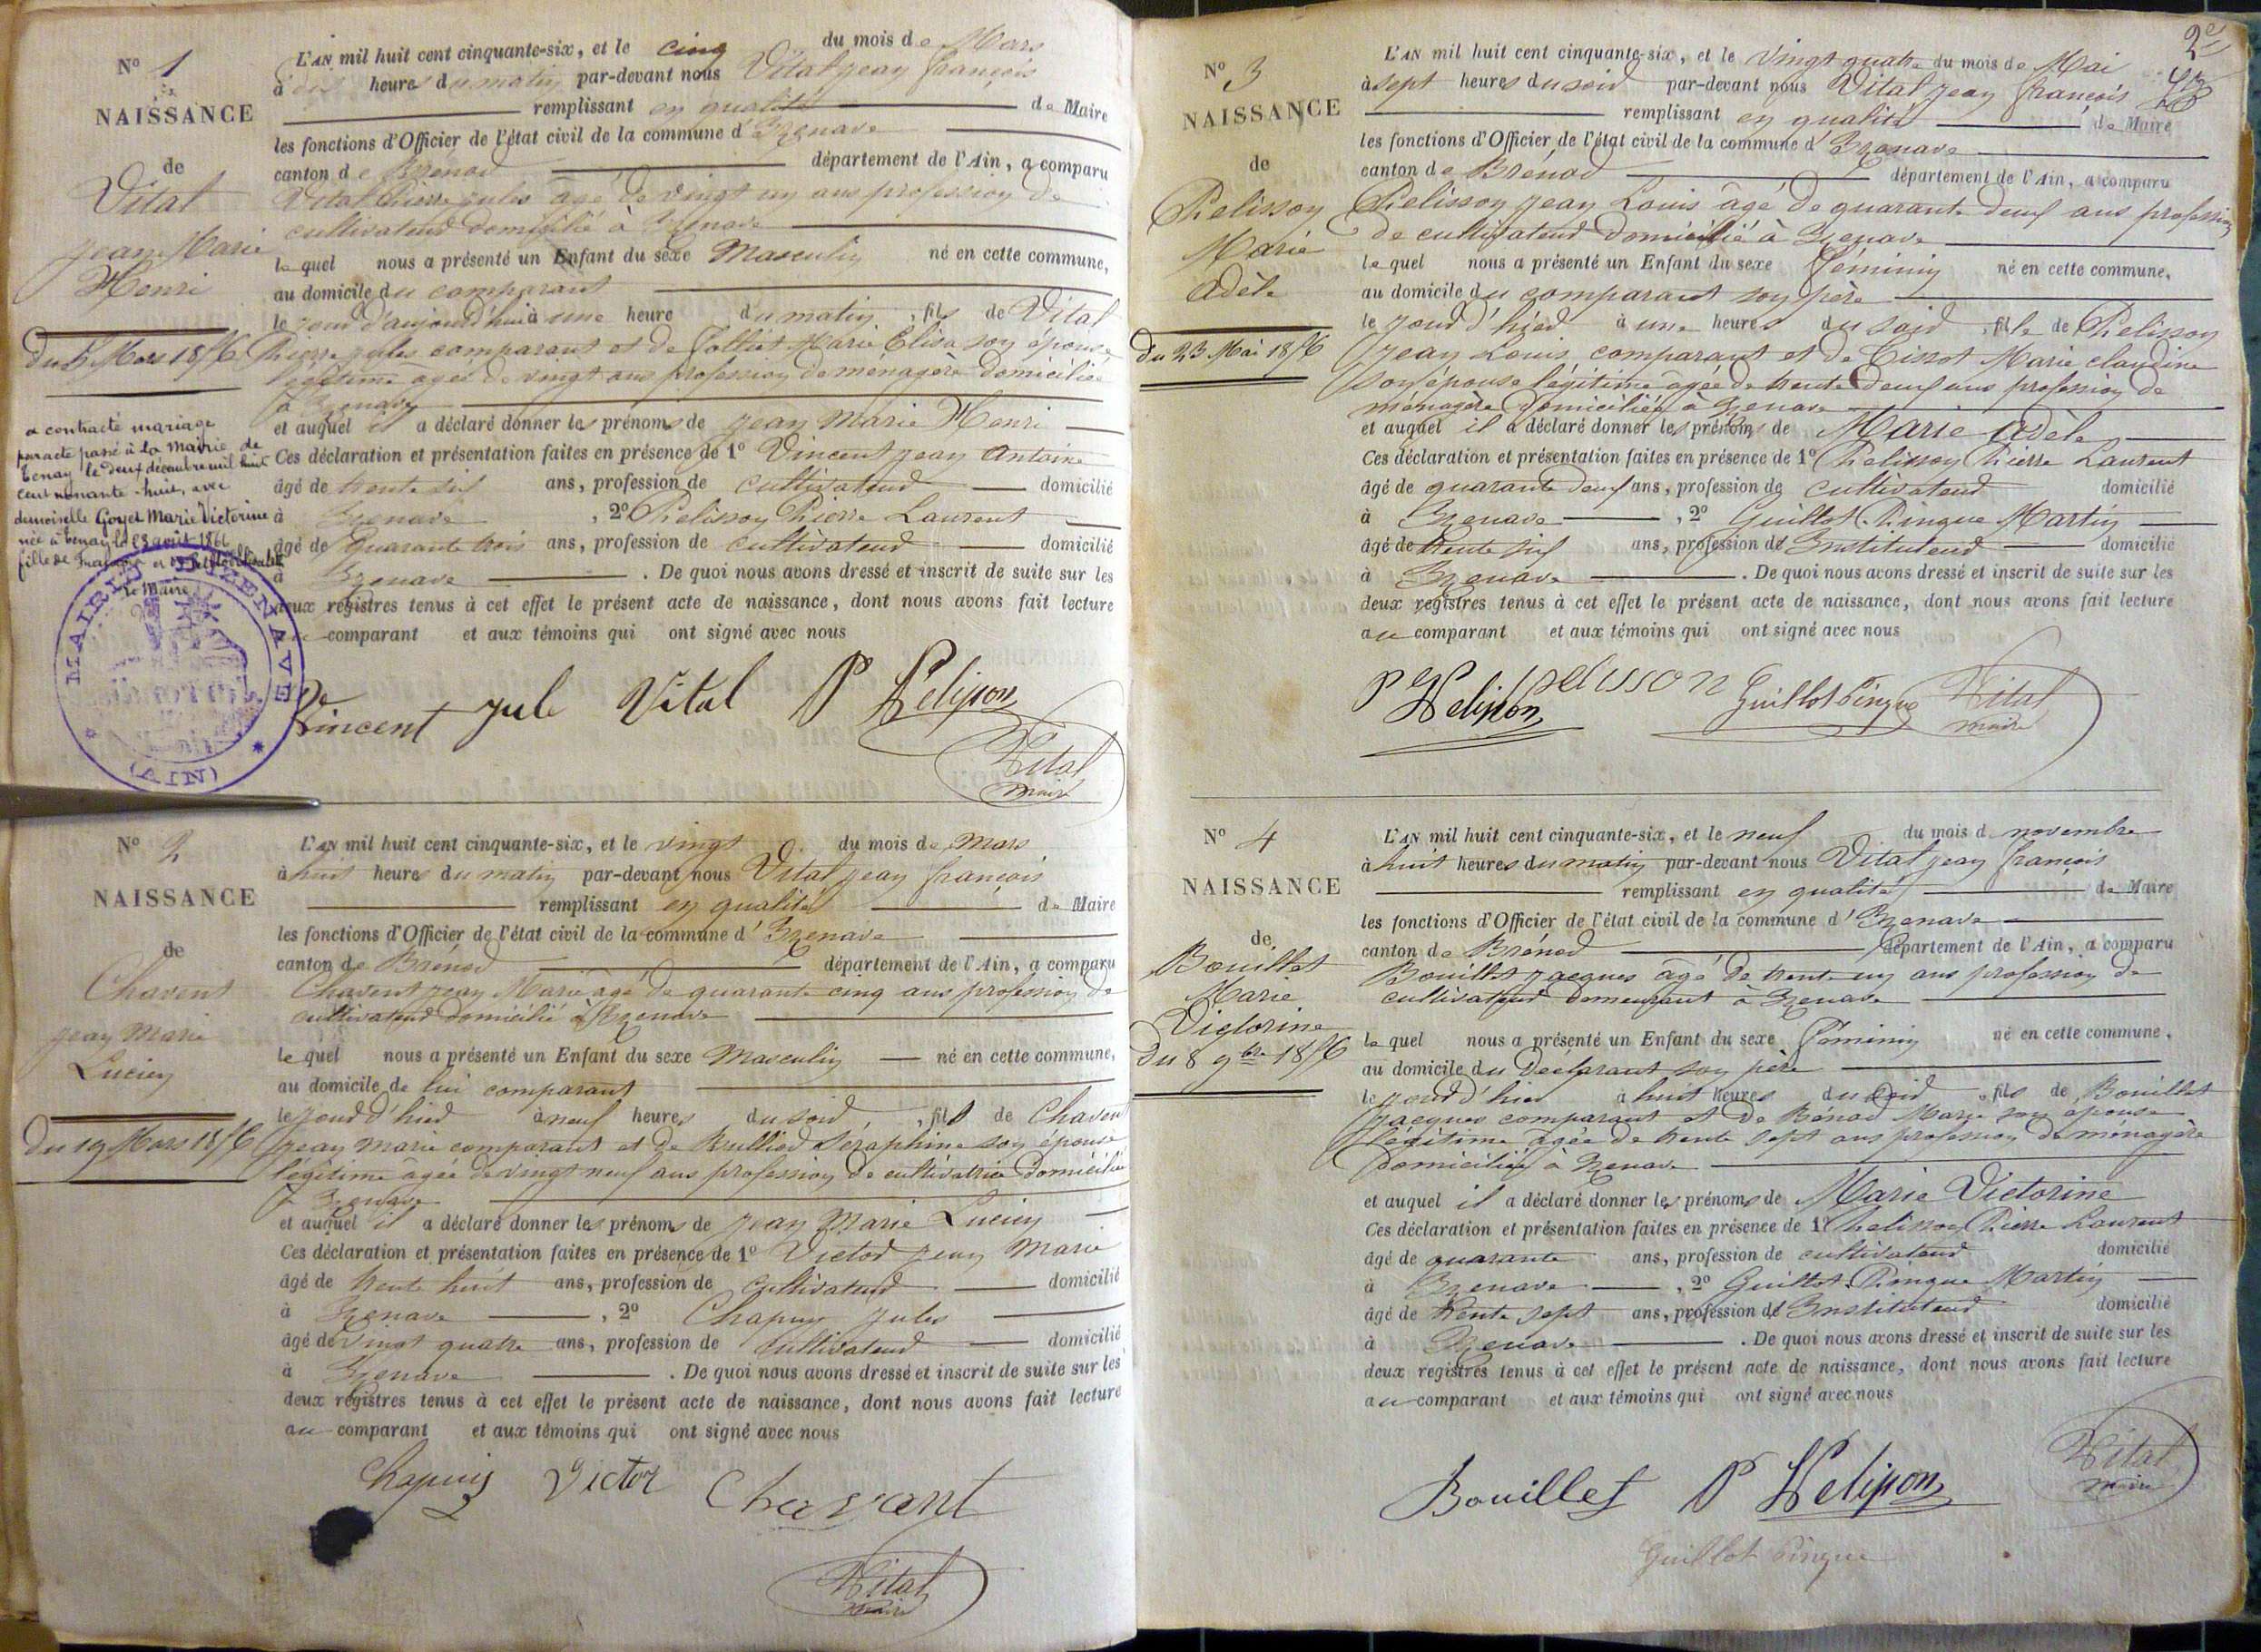 N° 1
NAISSANCE
de
Vital
Jean Marie
Henri
du 5 Mars 1856
a contracté mariage
par acte passé à la Mairie de
Tenay le deux décembre mil huit
cent nonante-huit, avec
demoiselle Goyet Marie Victorine
née à Tenay le 23 août 1866
fille de
Le Maire
MAIRIE D'IZENAVE
(AIN)
L'AN mil huit cent cinquante-six, et le cinq du mois de Mars
à dix heures du matin par-devant nous Vital Jean François
remplissant en qualité de Maire
les fonctions d'Officier de l'état civil de la commune d'Izenave
canton de Brénod département de l'Ain, a comparu
Vital Pierre Jules âgé de vingt un ans profession de
cultivateur domicilié à Izenave
lequel nous a présenté un Enfant du sexe Masculin né en cette commune,
au domicile du comparant
le jour d'aujourd'hui à une heure du matin, fils de Vital
Pierre Jules comparant et de Jolliet Marie Elisa son épouse
légitime âgée de vingt ans profession de ménagère domiciliée
à Izenave
et auquel il a déclaré donner les prénoms de Jean Marie Henri
Ces déclaration et présentation faites en présence de 1° Vincent Jean Antoine
âgé de trente six ans, profession de cultivateur domicilié
à Izenave, 2° Pelisson Pierre Laurent
âgé de quarante trois ans, profession de cultivateur domicilié
à Izenave. De quoi nous avons dressé et inscrit de suite sur les
deux registres tenus à cet effet le présent acte de naissance, dont nous avons fait lecture
au comparant et aux témoins qui ont signé avec nous
Vincent Jule Vital P Pelisson
Vital
maire
N° 2
NAISSANCE
de
Chavent
Jean Marie
Lucien
du 19 Mars 1856
L'AN mil huit cent cinquante-six, et le vingt du mois de Mars
à huit heures du matin par-devant nous Vital Jean François
remplissant en qualité de Maire
les fonctions d'Officier de l'état civil de la commune d'Izenave
canton de Brénod département de l'Ain, a comparu
Chavent Jean Marie âgé de quarante cinq ans profession de
cultivateur domicilié à Izenave
lequel nous a présenté un Enfant du sexe Masculin né en cette commune,
au domicile de lui comparant
le jour d'hier à neuf heures du soir, fils de Chavent
Jean Marie comparant et de Brulliod Séraphine son épouse
légitime âgée de vingt neuf ans profession de cultivatrice domiciliée
à Izenave
et auquel il a déclaré donner les prénoms de Jean Marie Lucien
Ces déclaration et présentation faites en présence de 1° Victor Jean Marie
âgé de trente huit ans, profession de cultivateur domicilié
à Izenave, 2° Chapuy Jules
âgé de vingt quatre ans, profession de cultivateur domicilié
à Izenave. De quoi nous avons dressé et inscrit de suite sur les
deux registres tenus à cet effet le présent acte de naissance, dont nous avons fait lecture
au comparant et aux témoins qui ont signé avec nous
Chapuis Victor Chavant
Vital
maire
2e
N° 3
NAISSANCE
de
Pelisson
Marie
Adèle
du 23 Mai 1856
L'AN mil huit cent cinquante-six, et le vingt quatre du mois de Mai
à sept heures du soir par-devant nous Vital Jean François
remplissant en qualité de Maire
les fonctions d'Officier de l'état civil de la commune d'Izenave
canton de Brénod département de l'Ain, a comparu
Pelisson Jean Louis âgé de quarante deux ans profession
de cultivateur domicilié à Izenave
lequel nous a présenté un Enfant du sexe féminin né en cette commune,
au domicile du comparant son père
le jour d'hier à une heures du soir, fille de Pelisson
Jean Louis comparant et de Tissot Marie claudine
son épouse légitime âgée de trente deux ans profession de
ménagère domiciliée à Izenave
et auquel il a déclaré donner les prénoms de Marie Adèle
Ces déclaration et présentation faites en présence de 1° Pelisson Pierre Laurent
âgé de quarante deux ans, profession de cultivateur domicilié
à Izenave, 2° Guillot-Pingue Martin
âgé de trente six ans, profession d'Instituteur domicilié
à Izenave. De quoi nous avons dressé et inscrit de suite sur les
deux registres tenus à cet effet le présent acte de naissance, dont nous avons fait lecture
au comparant et aux témoins qui ont signé avec nous
P Pelisson pelisson Guillot Pingue Vital
maire
N° 4
NAISSANCE
de
Bouillet
Marie
Victorine
du 8 9bre 1856
L'AN mil huit cent cinquante-six, et le neuf du mois d novembre
à huit heures du matin par-devant nous Vital Jean François
remplissant en qualité de Maire
les fonctions d'Officier de l'état civil de la commune d'Izenave
canton de Brénod département de l'Ain, a comparu
Bouillet Jacques âgé de trente un ans profession de
cultivateur demeurant à Izenave
lequel nous a présenté un Enfant du sexe féminin né en cette commune,
au domicile du Déclarant son père
le jour d'hier à huit heures du soir, fils de Bouillet
Jacques comparant et de Bénod Marie son épouse
légitime âgée de trente sept ans profession de ménagère
domiciliée à Izenave
et auquel il a déclaré donner les prénoms de Marie Victorine
Ces déclaration et présentation faites en présence de 1° Pelisson Pierre Laurent
âgé de quarante ans, profession de cultivateur domicilié
à Izenave, 2° Guillot-Pingue Martin
âgé de trente sept ans, profession d'Instituteur domicilié
à Izenave. De quoi nous avons dressé et inscrit de suite sur les
deux registres tenus à cet effet le présent acte de naissance, dont nous avons fait lecture
au comparant et aux témoins qui ont signé avec nous
Bouillet P Pelisson Vital
maire
Guillot Pingue